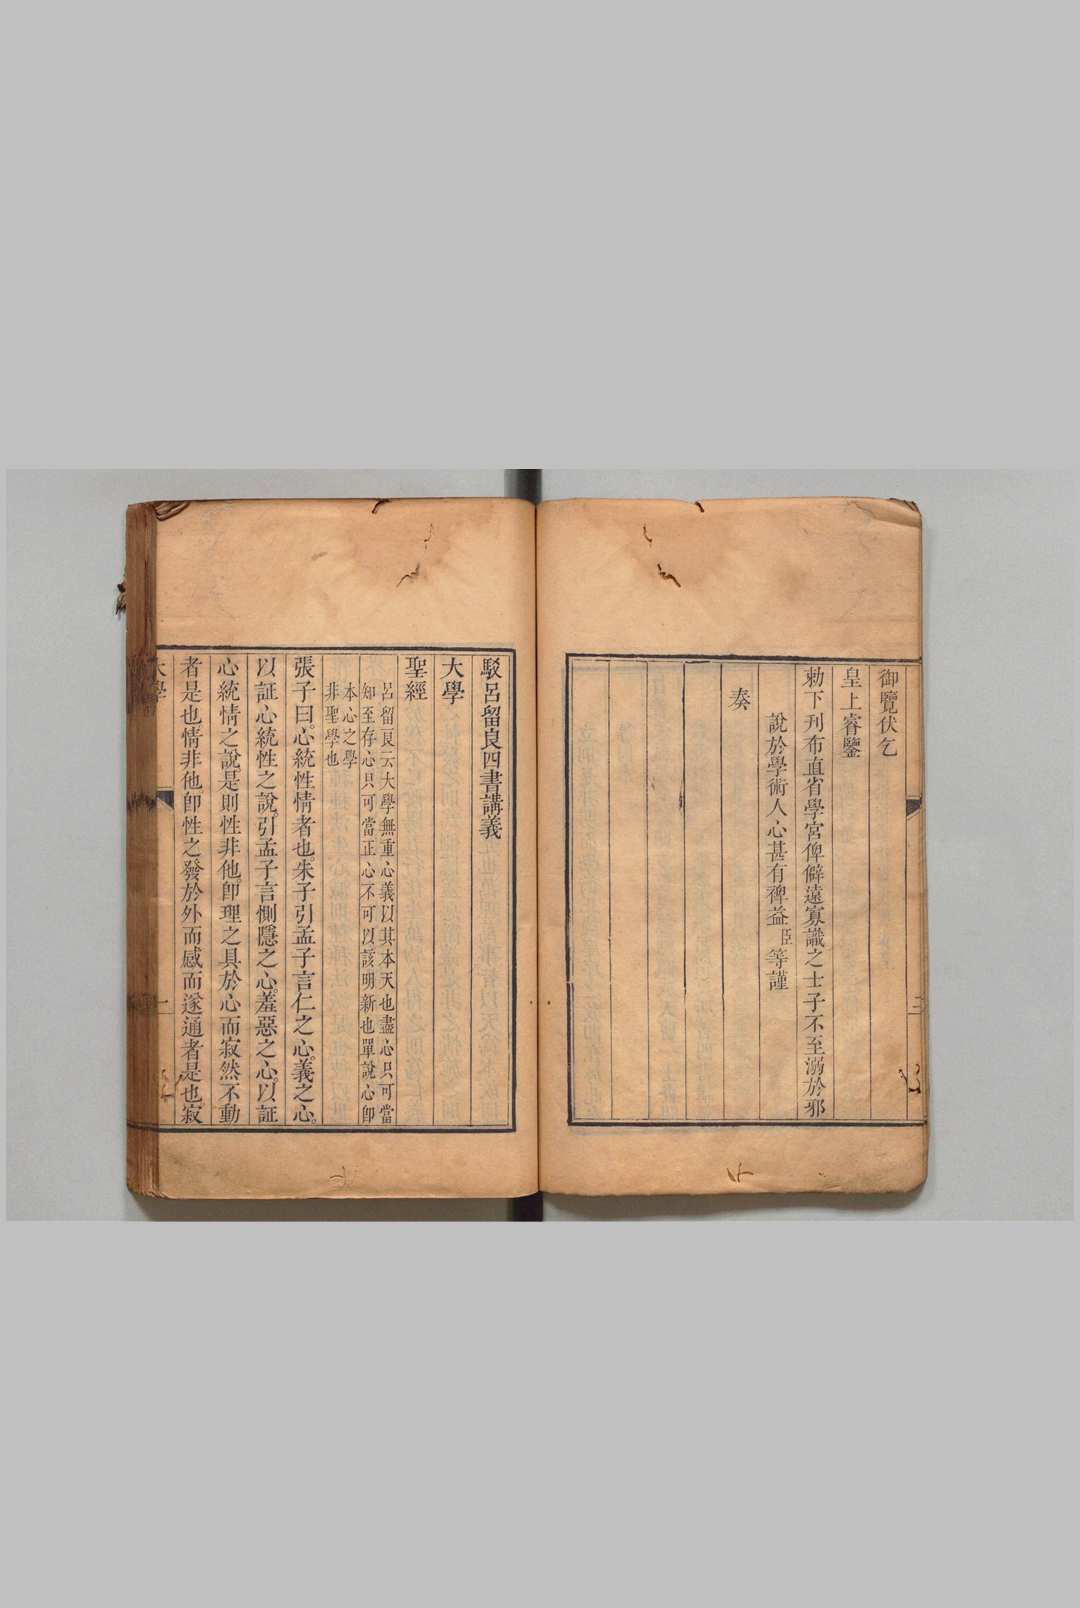 御覽伏乞
皇上睿鑒
勅下刋布直省學宮俾僻遠寡識之士子不至溺於邪
說於學術人心甚有裨益臣等謹
奏
駁呂留良四書講義
大學
聖經
呂留良云大學無重心義以其本天也盡心只可當
知至存心只可當正心不可以該明新也單說心卽
本心之學
非聖學也
張子曰。心統性情者也。朱子引孟子言仁之心。義之心。
以証心統性之說。引孟子言惻隱之心。羞惡之心。以証
心統情之說。是則性非他。卽理之具於心而寂然不動
者是也。情非他。卽性之發於外而感而遂通者是也。寂
大學